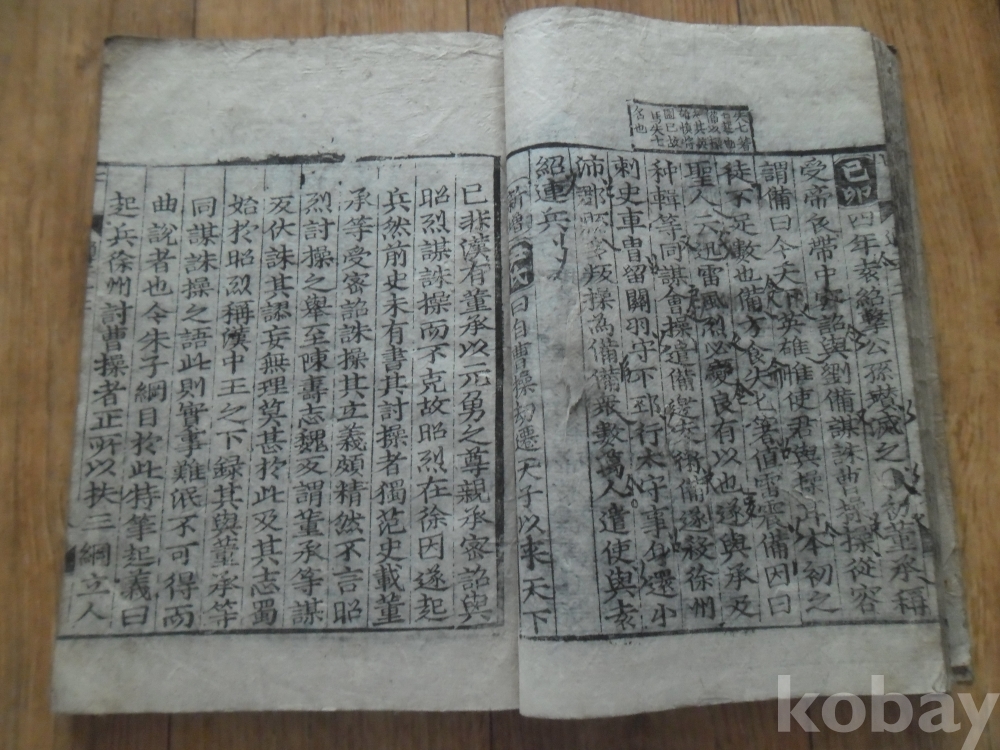 失匕著
己卯四年袁紹擊公孫瓚滅之初董承稱
受帝衣帶中密詔與劉備謀誅曹操操從容
謂備曰今天下英雄惟使君與操耳本初之
徒不足數也備方食失匕著值雷震備因曰
聖人云迅雷風烈必變良有以也遂與承及
种輯等同謀會操遣備邀袁術備遂殺徐州
刺史車冑留關羽守下邳行太守事身還小
沛郡縣多叛操爲備備衆數萬人遣使與袁
紹連兵
新增曰自曹操刼遷天子以來天下
已非漢有董承以元勇之尊親承密詔與
昭烈謀誅操而不克故昭烈在徐因遂起
兵然前史未有書其討操者獨范史載董
承等受密詔誅操其立義頗精然不言昭
烈討操之舉至陳壽志魏又謂董承等謀
反伏誅其謬妄無理莫甚於此及其志蜀
始於昭烈稱漢中王之下録其與董承等
同謀誅操之語此則實事難泯不可得而
曲說者也今朱子綱目於此特筆起義曰
起兵徐州討曹操者正所以扶三綱立人
kobay